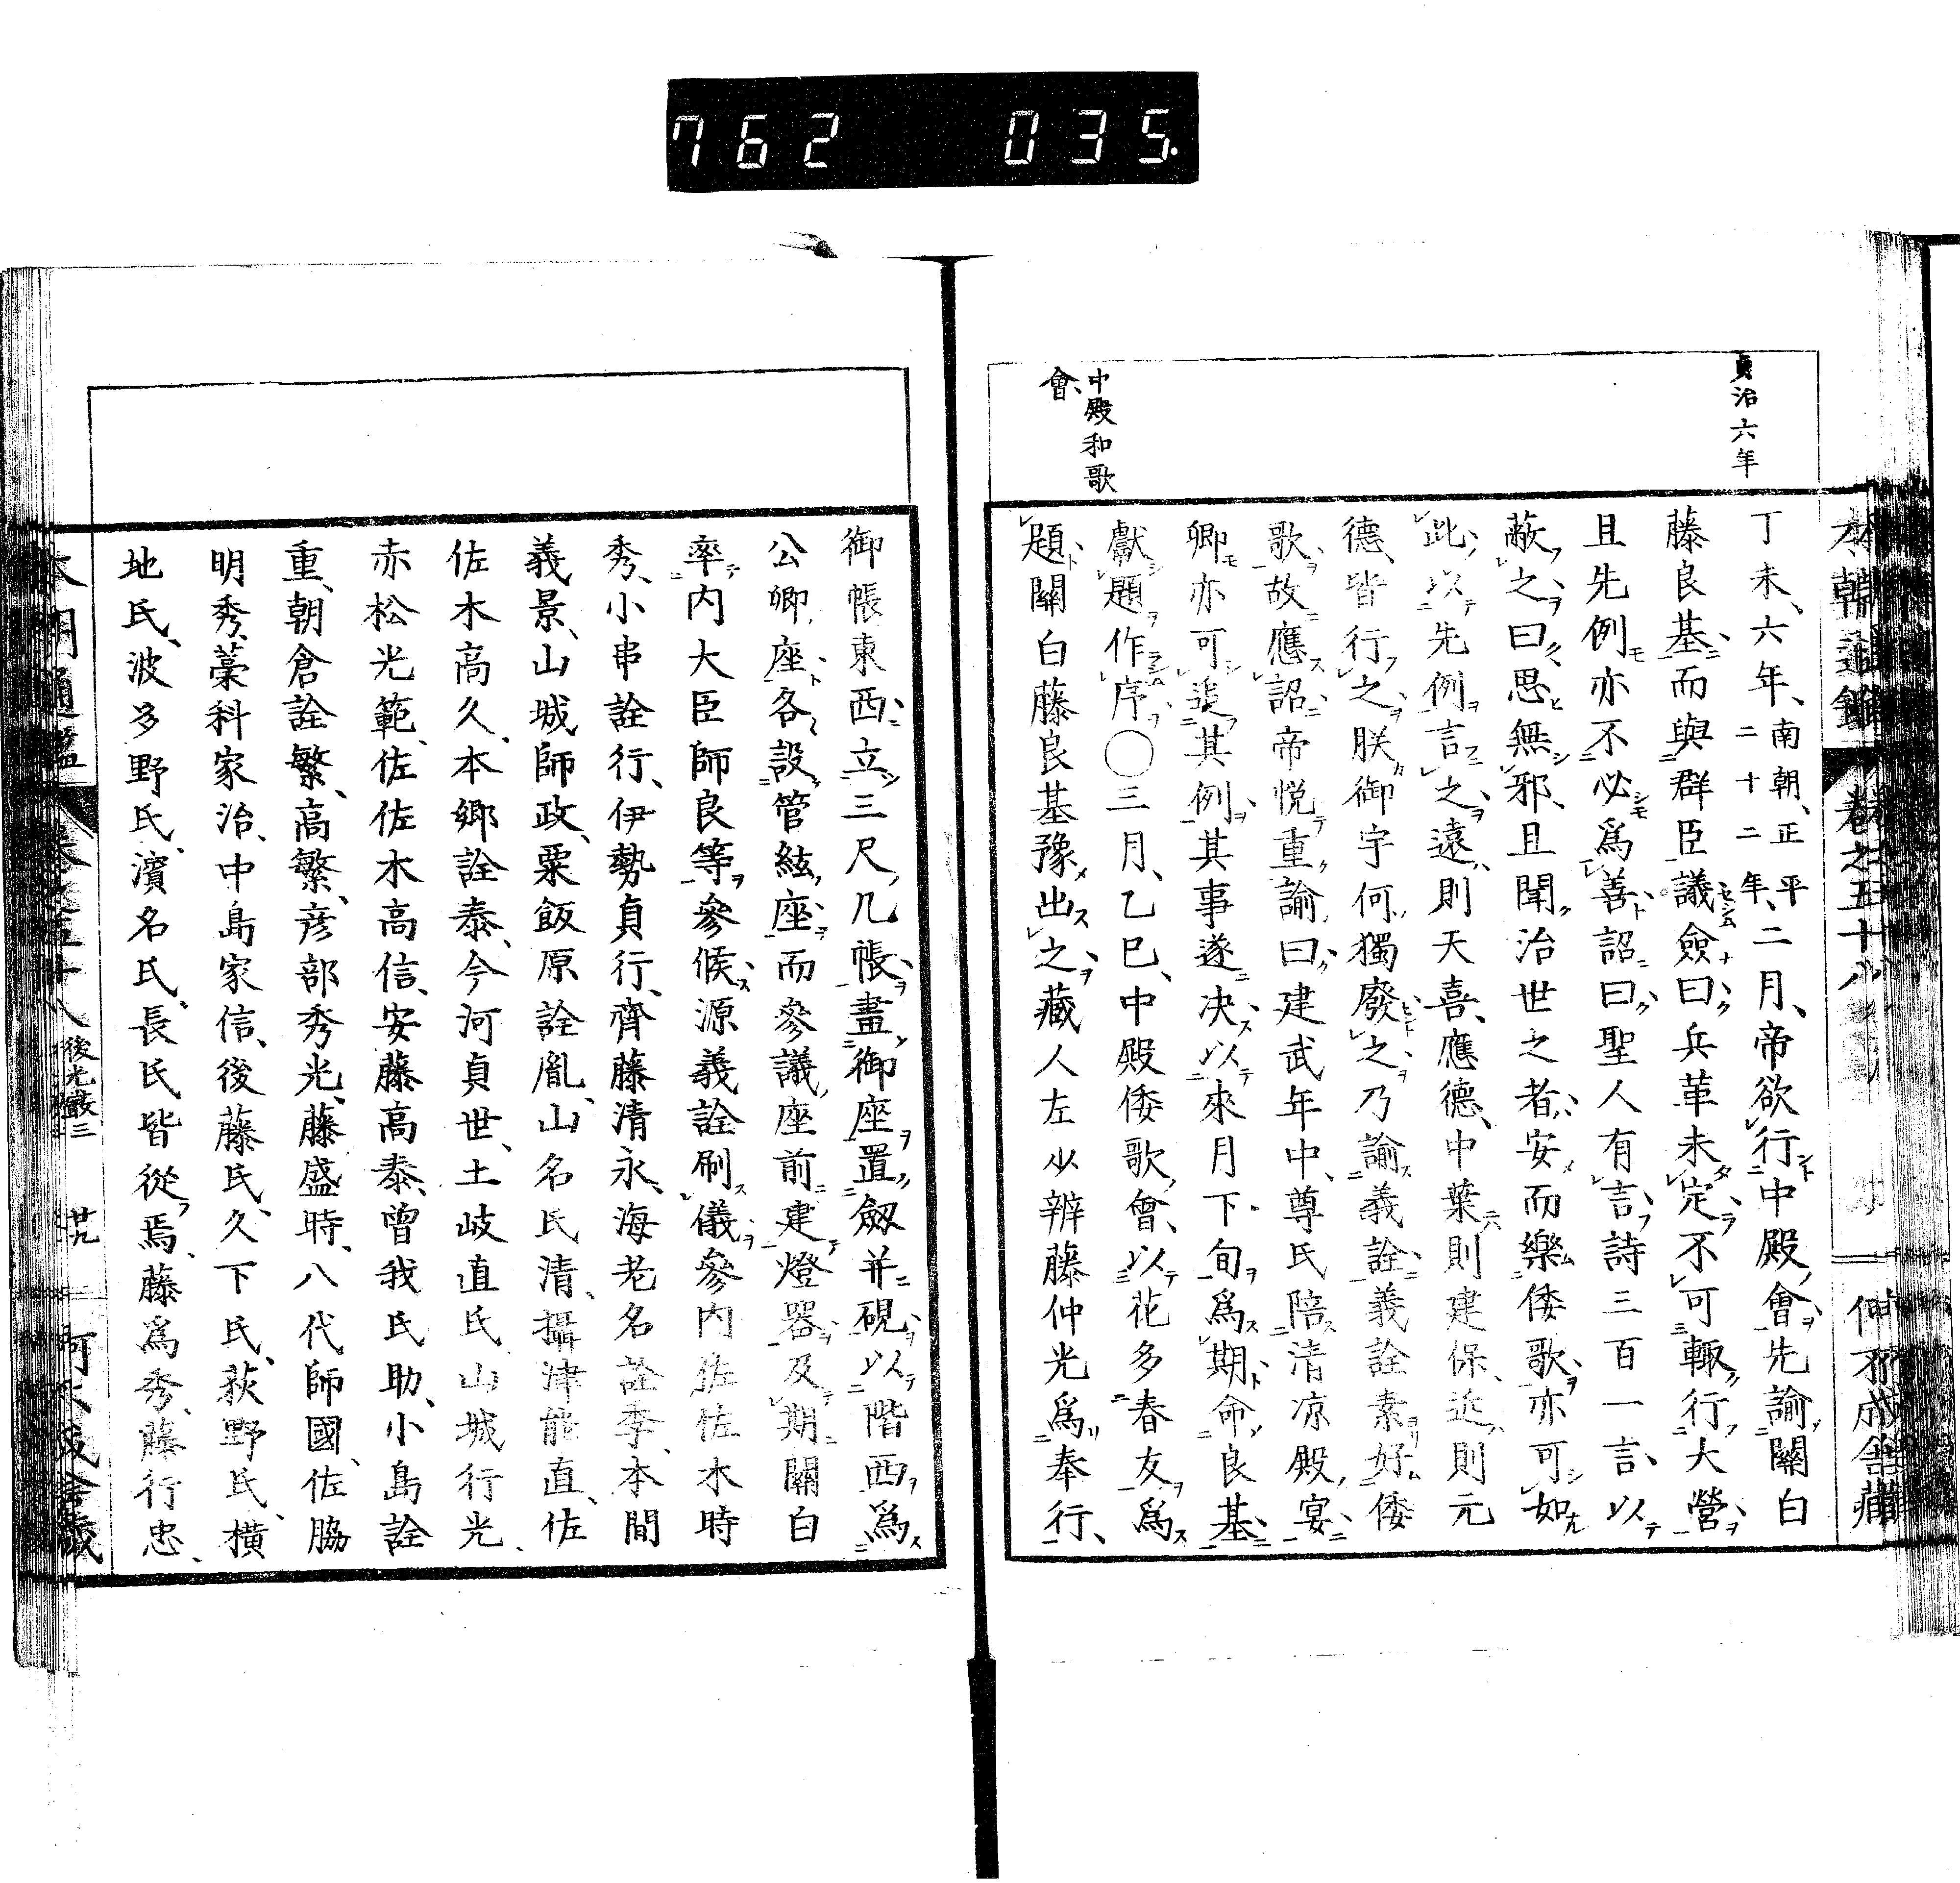 762 035
貞治六年
中殿和歌
會、
丁未、六年、南朝、正平二十二年、二月、帝欲行中殿會、先諭關白
藤良基、而與群臣議、僉曰、兵革未定、不可輙行大營、
且先例亦不必爲善、詔曰、聖人有言、詩三百一言以
蔽之、曰、思無邪、且聞治世之者、安而樂、倭歌亦可如
此、以先例言之、遠則天喜、應德、中葉則建保、近則元
德、皆行之、朕御宇何獨廢之、乃諭義詮、義詮素好倭
歌、故應詔、帝悅、重諭曰、建武年中、尊氏陪清涼殿宴、
卿亦可追其例、其事遂决、以來月下旬爲期、命良基
獻題作序〇三月、乙巳、中殿倭歌會、以花多春友爲
題、關白藤良基豫出之、藏人左少辨藤仲光爲奉行、
御帳東西立三尺几帳、畫御座置劔并硯、以階西爲
公卿座、各設管絃座、而參議座前建燈器、及期關白
率内大臣師良等參候、源義詮刷儀參内、佐佐木時
秀、小串詮行、伊勢貞行、齊藤清永、海老名詮季、本間
義景、山城師政、粟飯原詮胤、山名氏清、攝津能直、佐
佐木高久、本郷詮泰、今河貞世、土岐直氏、山城行光、
赤松光範、佐佐木高信、安藤高泰、曾我氏助、小島詮
重、朝倉詮繁、高繁、彦部秀光、藤盛時、八代師國、佐脇
明秀、藁科家治、中島家信、後藤氏、久下氏、荻野氏、横
地氏、波多野氏、濱名氏、長氏皆從焉、藤爲秀、藤行忠、
卷之五十八 後光嚴三 廿九